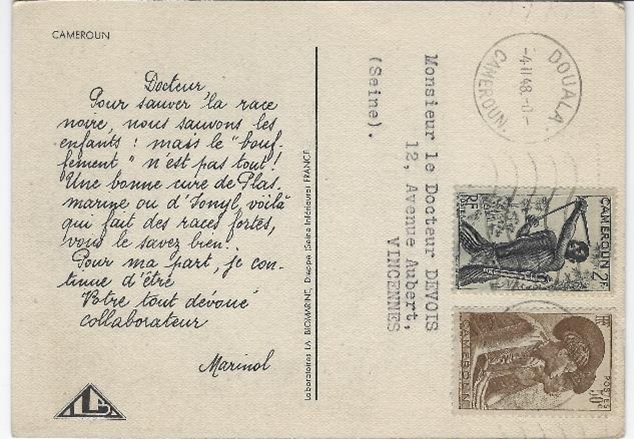 CAMEROUN
Docteur,
Pour sauver la race
noire, nous sauvons les
enfants : mais le "bouf-
fement" n'est pas tout!
Une bonne cure de Plas-
marine ou d'Ionyl, voilà
qui fait des races fortes,
vous le savez bien.
Pour ma part, je con-
tinue d'être
Votre tout dévoué
collaborateur
Marinol
Laboratoires LA BIOMARINE, Dieppe (Seine Inférieure) FRANCE
Monsieur le Docteur DEVOIS
12, Avenue Aubert,
VINCENNES
(Seine).
DOUALA
-4.II 48.-0-
CAMEROUN.
CAMEROUN 2F
RF
CAMEROUN
POSTES
50c